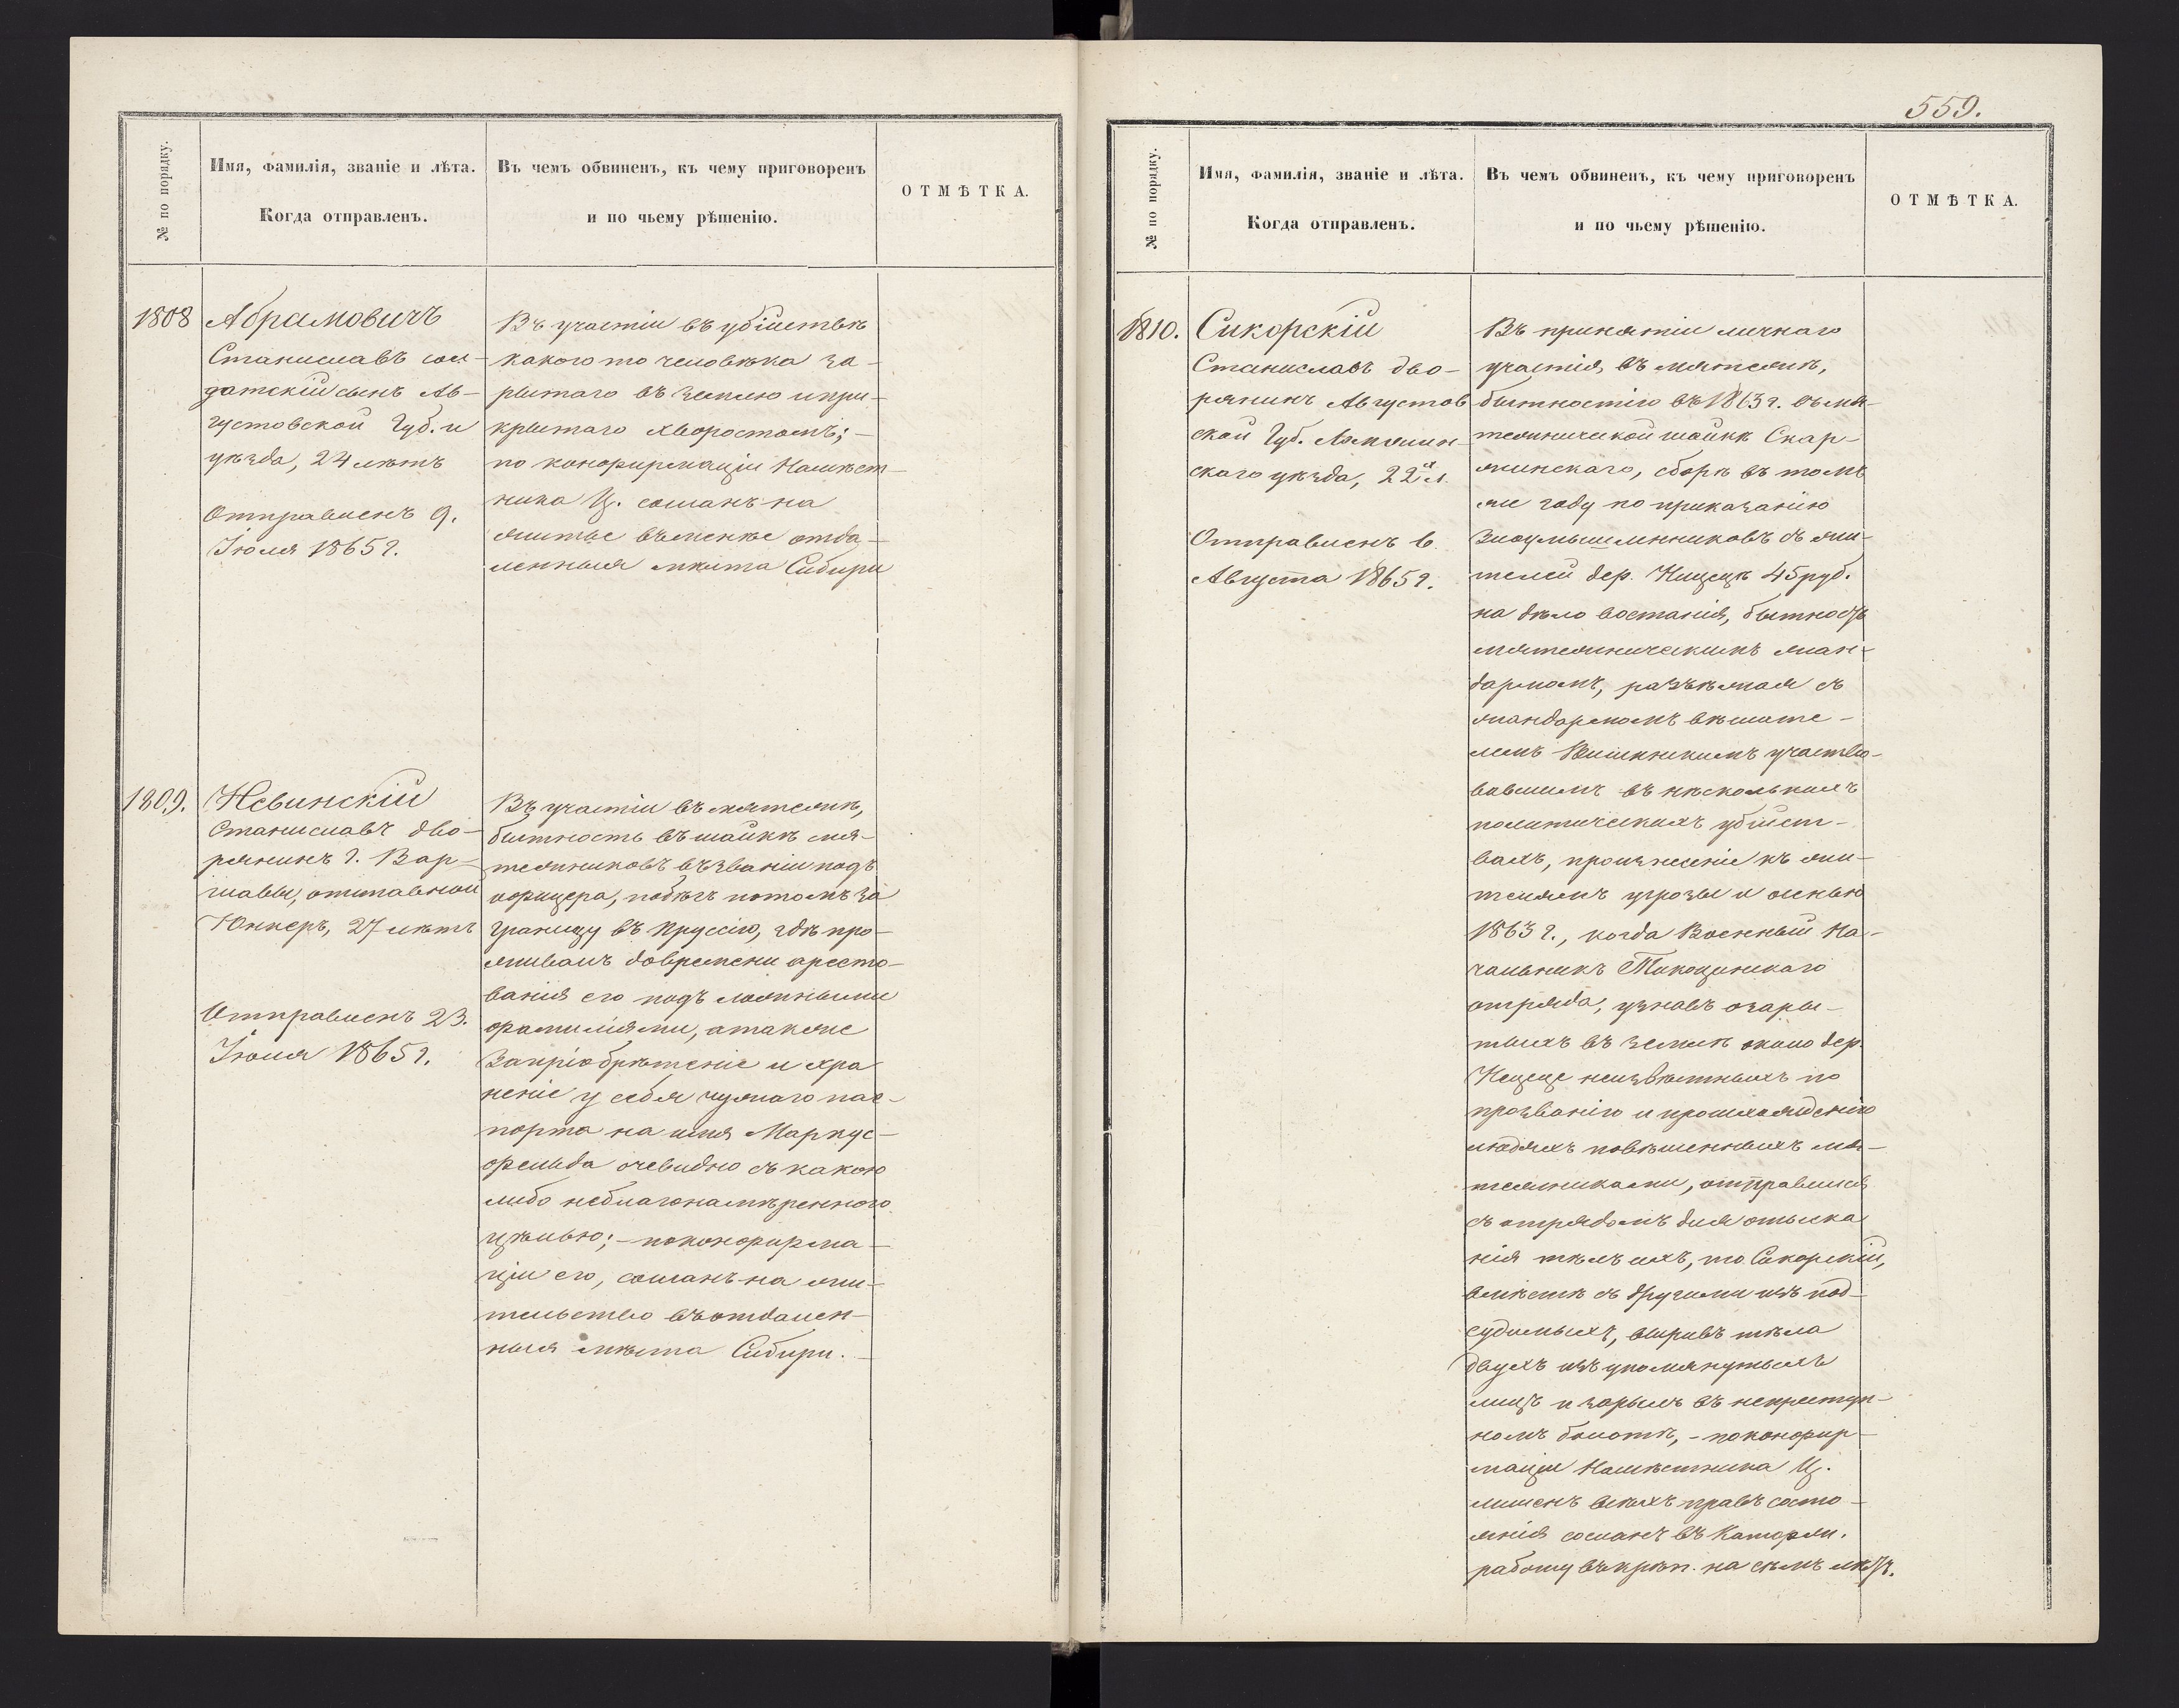 № по порядку.
Имя, фамилія, званіе и лѣта.
Когда отправленъ.
Въ чемъ обвиненъ, къ чему приговоренъ
и по чьему рѣшенію.
ОТМѢТКА.
1808
Абрамовичъ
Станиславъ сол-
датскій сынъ Ав-
густовской Губ. и
уѣзда, 24 лѣтъ
Отправленъ 9.
Іюля 1865 г.
Въ участіи въ убійствѣ
какого то человѣка за-
рытаго въ землю и при-
крытаго хворостомъ; -
по конфирмаціи Намѣст-
ника Ц. сосланъ на
житье въ менѣе отда-
ленныя мѣста Сибири
1809.
Невинскій
Станиславъ дво-
рянинъ г. Вар-
шавы, отставной
Юнкеръ, 27 лѣтъ
Отправленъ 23.
Іюля 1865 г.
Въ участіи въ мятежѣ,
бытность въ шайкѣ мя-
тежниковъ въ званіи подъ
офицера, побѣгъ потомъ за
границу въ Пруссію, гдѣ про-
живалъ до времени аресто-
ванія его подъ ложными
фамиліями, а также
за пріобрѣтеніе и хра
неніе у себя чужаго пас-
порта на имя Маркус-
фельда очевидно съ какою
либо неблагонамѣренного
цѣлью; - по конфирма-
ціи его, сосланъ на жи-
тельство въ отдален-
ныя мѣста Сибири. -
559.
№ по порядку.
Имя, фамилія, званіе и лѣта.
Когда отправленъ.
Въ чемъ обвиненъ, къ чему приговоренъ
и по чьему рѣшенію.
ОТМѢТКА.
1810.
Сикорскій
Станиславъ дво-
рянинъ Августов
ской Губ. Ломжин-
скаго уѣзда, 22 л.
Отправленъ 6.
Августа 1865 г.
Въ принятіи личнаго
участія, въ мятежѣ,
бытностію въ 1863 г. въ мя-
тежнической шайкѣ Скар-
жинскаго, сборѣ въ томъ
же году по приказанію
злоумышленниковъ съ жи-
телей дер. Нищецъ 45 руб.
на дѣло востанія, бытность
мятежническимъ жан-
дармомъ, разъѣзжая съ
жандармомъ вѣшате-
лемъ участво-
вавшимъ въ нѣсколькихъ
политическихъ убійст-
вахъ, произнесеніе къ жи-
телямъ угрозы и осенью
1863 г., когда Военный На-
чальникъ Тикоцинскаго
отряда, узнавъ о зары-
тыхъ въ землѣ около дер.
Нецеце неизвѣстныхъ по
прозванію и происхожденію
людяхъ повѣшенныхъ мя-
тежниками, отправился
съ отрядомъ для отыска
нія тѣлъ ихъ, то Сикорскій,
вмѣстѣ съ другими изъ под-
судимыхъ, вырывъ тѣла
двухъ изъ упомянутыхъ
лицъ и зарылъ въ непреступ-
номъ болотѣ, - по конфир-
маціи Намѣстника Ц.
лишенъ всѣхъ правъ состо-
янія сосланъ въ Каторжн.
работу въ крѣп. на семъ лѣтъ.